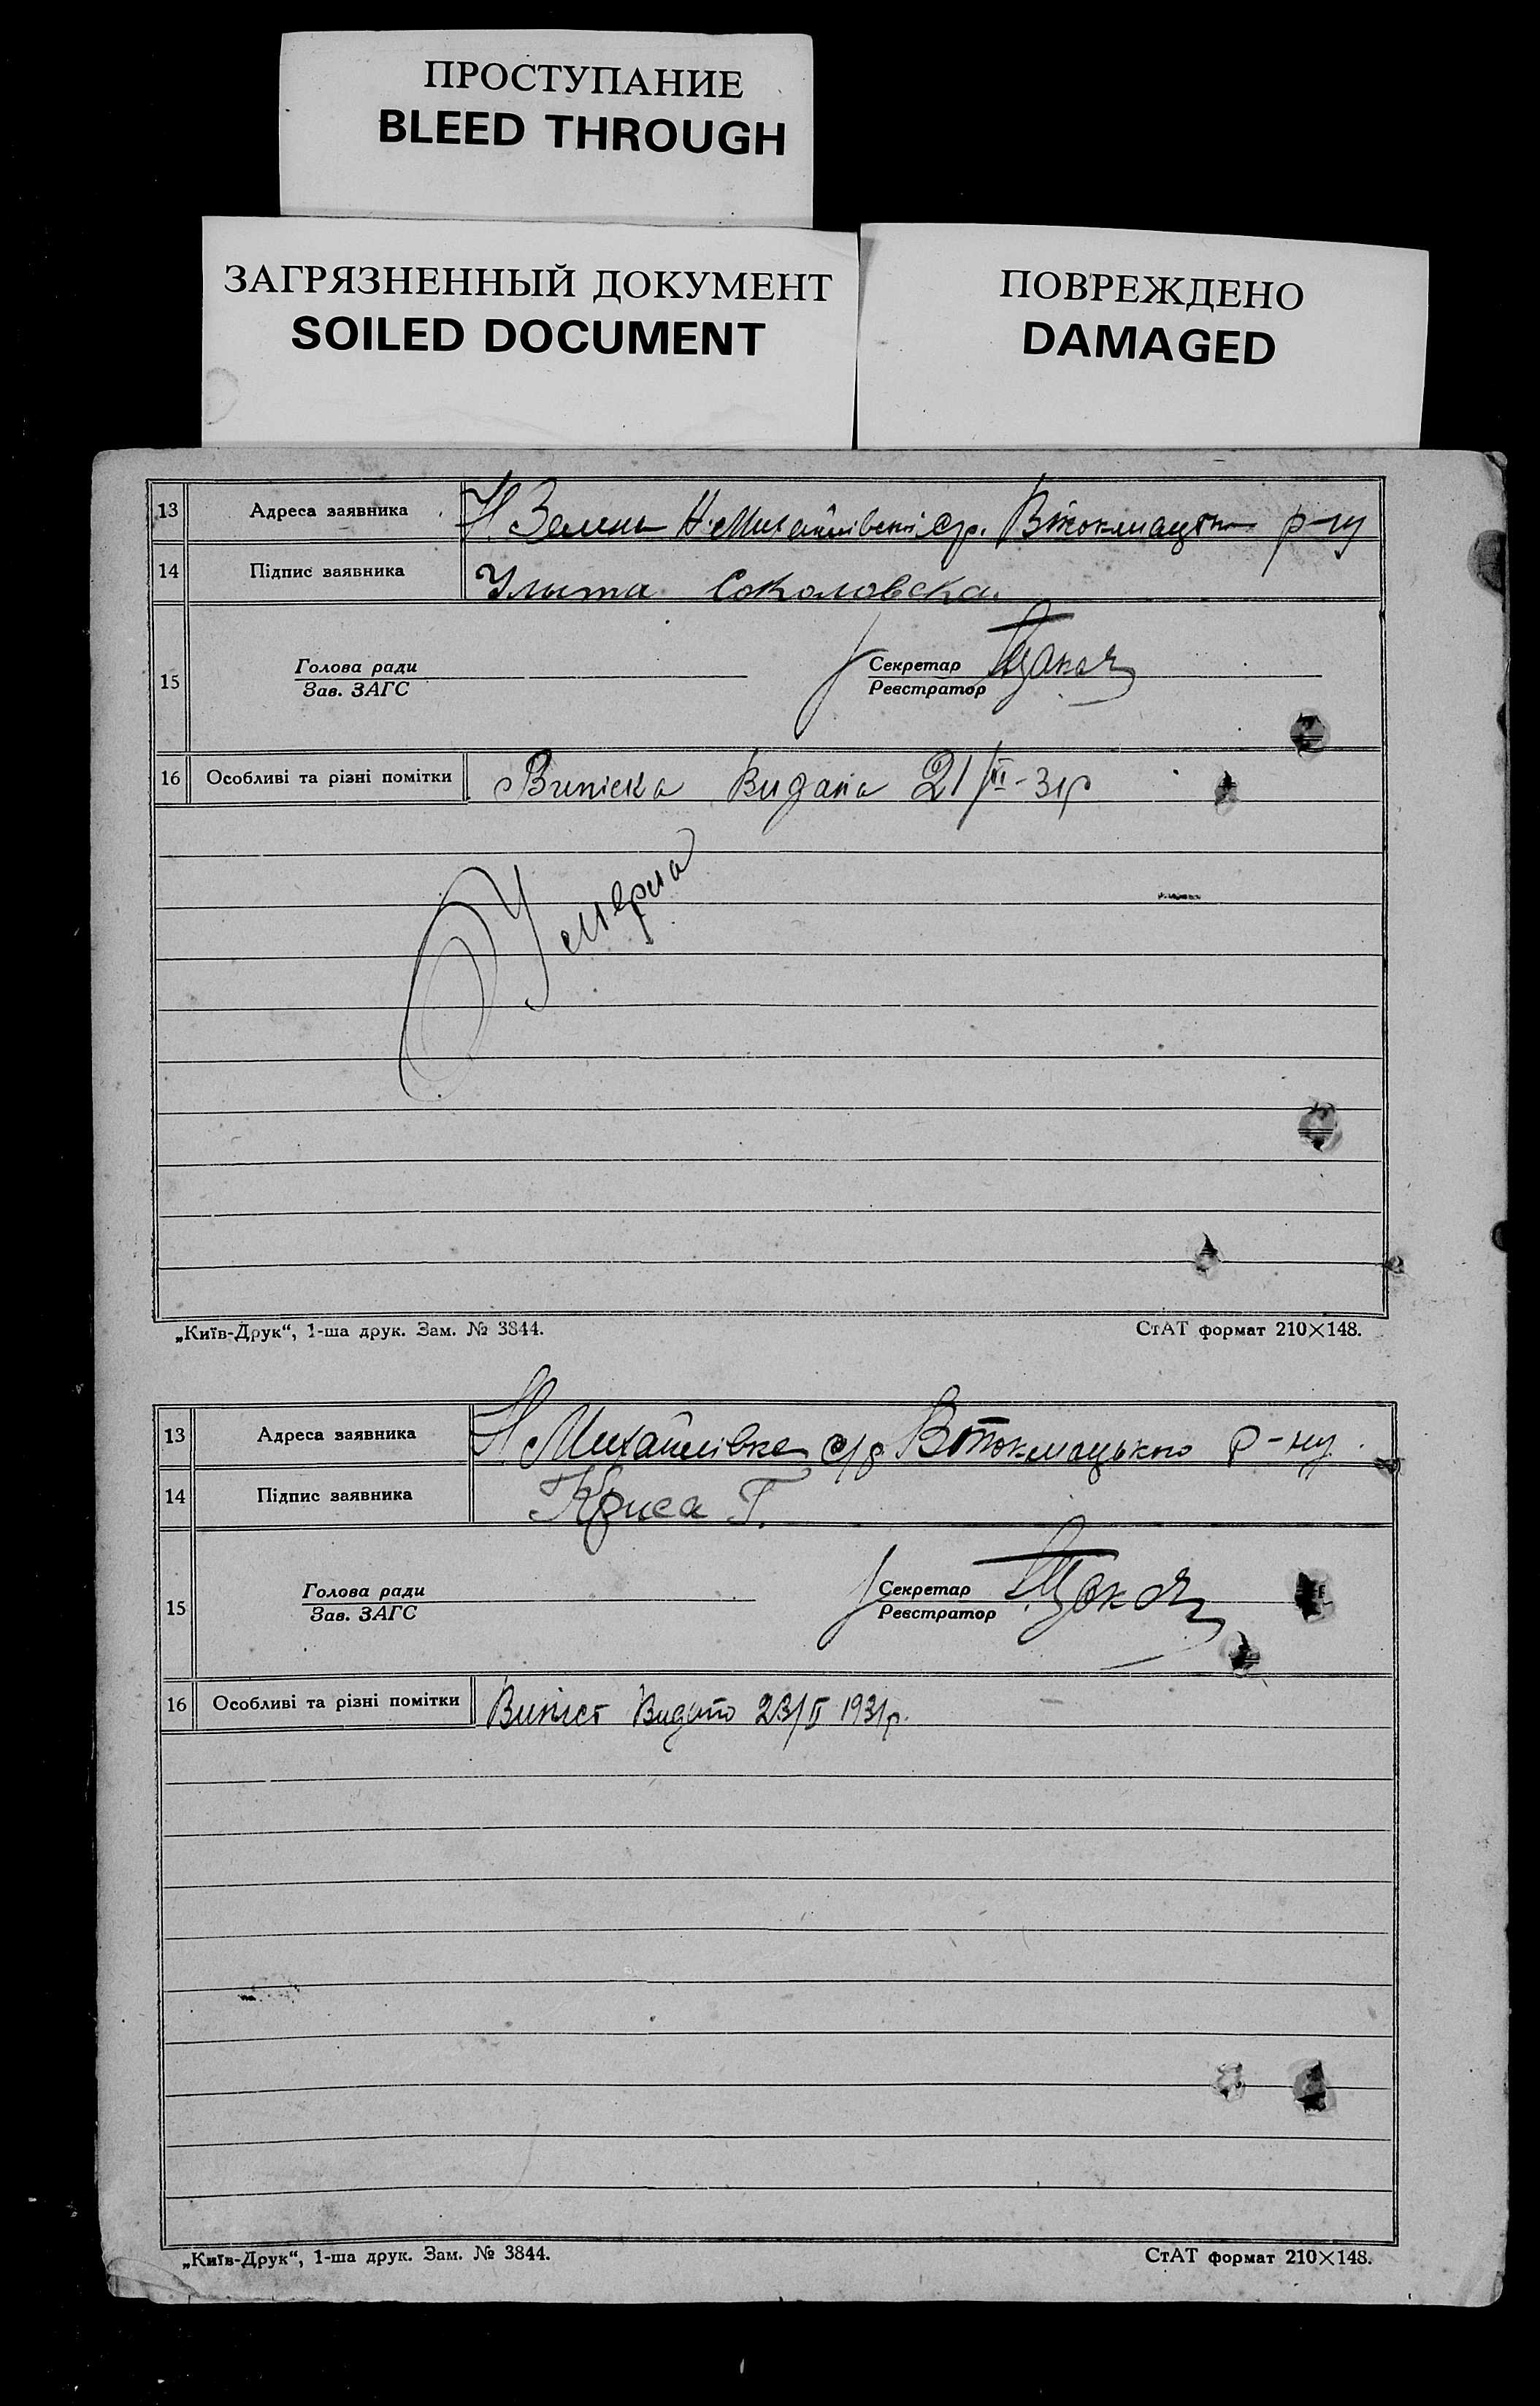 ПРОСТУПАНИЕ
BLEED THROUGH
ЗАГРЯЗНЕННЫЙ ДОКУМЕНТ
SOILED DOCUMENT
ПОВРЕЖДЕНО
DAMAGED
13 Адреса заявника Н. р-ну
14 Підпис заявника Улыта Соколовска
15 Голова ради Секретар
Зав. ЗАГС Реєстратор
16 Особливі та різні помітки Виписка видана 21/VI-31р
Умерла
„Київ-Друк“, 1-ша друк. Зам. № 3844. СтАТ формат 210×148.
13 Адреса заявника Н Михайлівка с/р Втокмацького р-ну.
14 Підпис заявника Криса Г.
15 Голова ради Секретар
Зав. ЗАГС Реєстратор
16 Особливі та різні помітки Видано 1931р.
„Київ-Друк“, 1-ша друк. Зам. № 3844. СтАТ формат 210×148.